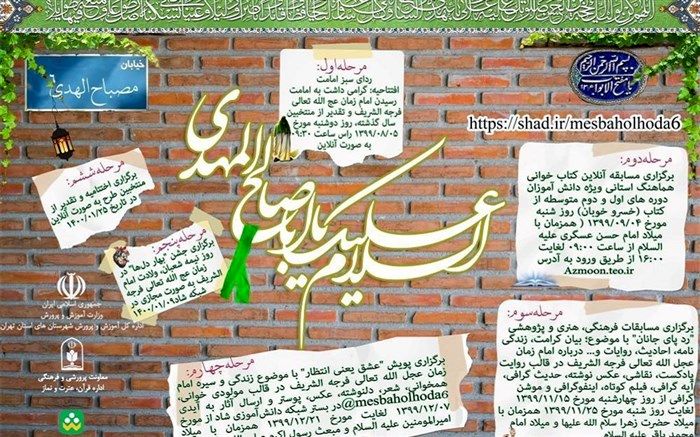 خیابان
مصباح الهدی ۶
مرحله اول:
ردای سبز امامت
افتتاحیه: گرامی داشت به امامت
رسیدن امام زمان عج الله تعالی
فرجه الشریف و تقدیر از منتخبین
سال گذشته، روز دوشنبه مورخ
۱۳۹۹/۰۸/۰۵ راس ساعت ۰۹:۳۰
به صورت آنلاین
https://shad.ir/mesbaholhoda6
مرحله دوم:
برگزاری مسابقه آنلاین کتاب خوانی
هماهنگ استانی ویژه دانش آموزان
دوره های اول و دوم متوسطه از
کتاب (خسرو خوبان) روز شنبه
مورخ ۱۳۹۹/۰۹/۰۴ ( همزمان با
میلاد امام حسن عسگری علیه
السلام از ساعت ۰۹:۰۰ لغایت
۱۶:۰۰ از طریق ورود به آدرس
Azmoon.teo.ir
السلام علیک یا اباصالح المهدی
مرحله سوم:
برگزاری مسابقات فرهنگی، هنری و پژوهشی
"رد پای جانان" با موضوع: بیان کرامت، زندگی
نامه، احادیث، روایات و... درباره امام زمان
عجل الله تعالی فرجه الشریف در قالب روایت
گرافی، نقاشی، عکس نوشته، حدیث گرافی،
آیه گرافی، فیلم کوتاه، اینفوگرافی و موشن
گرافی از روز چهارشنبه مورخ ۱۳۹۹/۱۱/۱۵
لغایت روز شنبه مورخ ۱۳۹۹/۱۱/۲۵ همزمان با
میلاد حضرت زهرا سلام الله علیها و میلاد امام
محمد باقر علیه
مرحله چهارم:
برگزاری پویش "عشق یعنی انتظار" با موضوع زندگی و سیره امام
زمان عجل الله تعالی فرجه الشریف در قالب مولودی خوانی،
همخوانی، شعر، دلنوشته، عکس، پوستر و ارسال آثار به آیدی
@mesbaholhoda6 در بستر شبکه دانش آموزی شاد از مورخ
۱۳۹۹/۱۲/۰۷ لغایت مورخ ۱۳۹۹/۱۲/۲۱ همزمان با
امیرالمومنین علیه السلام و مبعث رسول
مرحله پنجم:
برگزاری جشن "بهار دلها" در
روز نیمه شعبان، ولادت امام
زمان عج الله تعالی فرجه
الشریف به صورت مجازی در
شبکه شاد ۱۴۰۰/۰۱/۰۹
مرحله ششم:
برگزاری اختتامیه و تقدیر از
منتخبین طرح به صورت آنلاین
در تاریخ ۱۴۰۰/۰۱/۲۵
جمهوری اسلامی ایران
وزارت آموزش و پرورش
اداره کل آموزش و پرورش شهرستان های استان تهران
معاونت پرورشی و فرهنگی
اداره قرآن، عترت و نماز